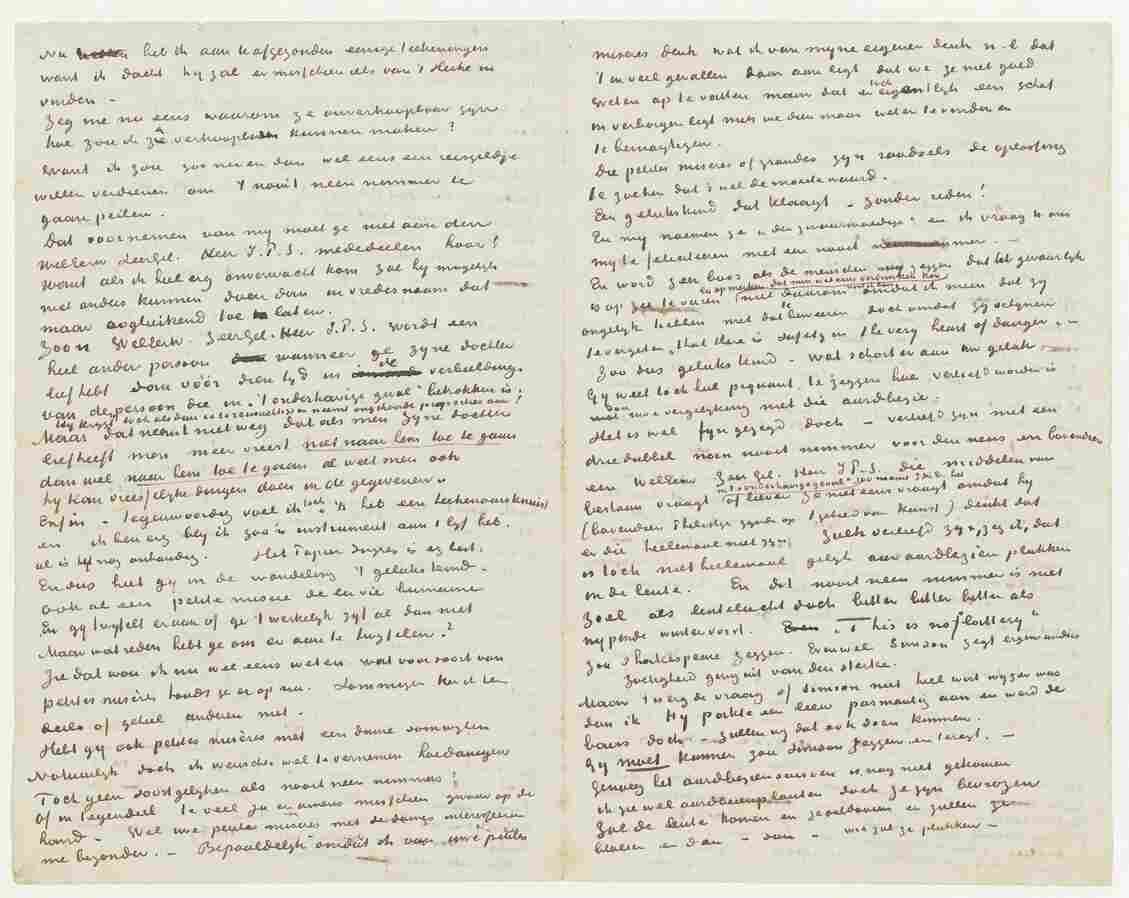 Nu heb ik aan t afgezonden eenige teekeningen
want ik dacht hij zal er misschien iets van 't Heike in
vinden –
Zeg me nu eens waarom ze onverkoopbaar zijn
hoe zou ik ze verkoopbaar kunnen maken?
Want ik zou zoo nu en dan wel eens een reisgeldje
willen verdienen om 't nooit neen nimmer te
gaan peilen.
Dat voornemen van mij moet ge niet aan den
WelEerw. Zeergel. Heer J.P.S. mededeelen hoor!
Want als ik heel erg onverwacht kom zal hij mogelijk
niet anders kunnen doen dan in vredesnaam dat
maar oogluikend toe te laten.
Zoo'n WelEerw. Zeergel. Heer J.P.S. wordt een
heel ander persoon wanneer ge zijne dochter
lief hebt dan vóór dien tijd in de verbeelding
van de persoon die in "'t onderhavige geval" betrokken is.
Hij krijgt
Maar dat neemt niet weg dat als men zijne dochter
liefheeft men meer vreest niet naar hem toe te gaan
dan wel naar hem toe te gaan al weet men ook
hij kan vreesselijke dingen doen in de gegevene
Enfin – Tegenwoordig voel ik "ik heb een teekenaarsknuist"
en ik ben erg blij ik zoo'n instrument aan 't lijf heb.
al is hij nog onhandig. Het Papier Ingres is erg best.
En dus hiet gij in de wandeling 't gelukskind –
ook al een petite misère de la vie humaine
En gij twijfelt eraan of ge 't werkelijk zijt al dan niet
Maar wat reden hebt ge om er aan te twijfelen?
Zie dat wou ik nu wel eens weten wat voor soort van
petites misères houdt ge er op na. Sommigen ken ik ten
deele of geheel anderen niet.
Hebt gij ook petites misères met een dame somwijlen
Natuurlijk doch ik wensch wel te vernemen hoedanigen
Toch geen doortgelijken als nooit neen nimmers!
Of in tegendeel te veel ja en amens misschien zwaar op de
hand – Wel uwe petites misères met de dames interesseeren
me bijzonder. – Bepaaldelijk omdat ik van uwe petites
misères denk wat ik van mijne eigenen denk n.l. dat
't in veel gevallen daar aan ligt dat we ze niet goed
weten op te vatten maar dat er toch eigentlijk een schat
in verborgen ligt mits we dien maar weten te vinden en
te bemagtigen.
Die petites misères of grandes zijn raadsels. De oplossing
te zoeken dat's wel de moeite waard.
Een gelukskind dat klaagt – zonder reden!
En mij noemen ze "den zwaarmoedige" en ik vraag te om
mij te feliciteeren met een nooit nimmer. –
En word zeer boos als de menschen zeggen dat het gevaarlijk
en opmerken dat men wel eens verdrinken kan
is op zee te varen niet daarom omdat ik meen dat zij
ongelijk hebben met dat te beweeren doch omdat zij schijnen
te vergeten "that there is safety in the very heart of danger". –
Zoo dus gelukskind – Wat schort er aan uw geluk
Gij weet toch heel piquant te zeggen hoe verliefd worden is
door uwe vergelijking met die aardbezie.
Het is wel fijn gezegd doch – verliefd zijn met een
driedubbel neen nooit nimmer voor den neus en bovendien
een WelEerw. Zeergel. Heer J.P.S. die middelen van
bestaan vraagt of liever ze niet eens vraagt omdat hij
(bovendien Philistijn zijnde op 't gebied van Kunst) denkt dat
er die heelemaal niet zijn, zulk verliefd zijn, zeg ik, dat
is toch niet heelemaal gelijk aan aardbezien plukken
in de lente. En dat nooit neen nimmer is niet
zoel als lentelucht doch bitter bitter bitter als
nijpende wintervorst. "This is no flattery"
zou Shakespeare zeggen. Evenwel Simson zegt er van anders
Zoetigheid ging uit van den sterke.
Maar 't is erg de vraag of Simson niet heel wat wijzer was
dan ik Hij pakte een leeuw parmantig aan en werd de
baas doch – zullen wij dat ook doen kunnen.
Gij moet kunnen zou Simson zeggen en teregt. –
Genoeg het aardbezienseizoen is nog niet gekomen
ik zie wel aardbezienplanten doch ze zijn bevrozen
Zal de lente komen en ze ontdooien en zullen ze
bloeien en dan – dan – wie zal ze plukken –